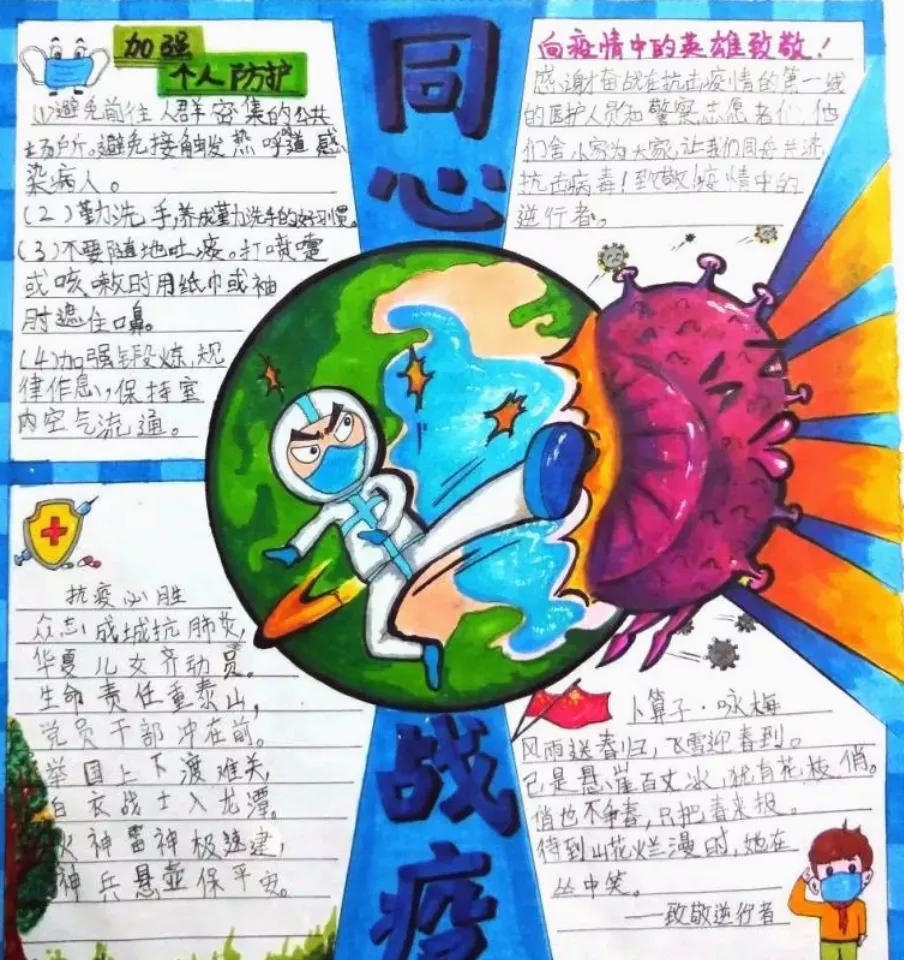 同心战疫
加强
个人防护
(1)避免前往人群密集的公共
场所。避免接触发热呼吸道感
染病人。
(2)勤洗手,养成勤洗手的好习惯。
(3)不要随地吐痰。打喷嚏
或咳嗽时用纸巾或袖
肘遮住口鼻。
(4)加强锻炼,规
律作息,保持室
内空气流通。
向疫情中的英雄致敬!
感谢奋战在抗击疫情的第一线
的医护人员和警察,志愿者们,他
们舍小家为大家,让我们同舟共济,
抗击病毒!致敬疫情中的
逆行者。
抗疫必胜
众志成城抗肺炎,
华夏儿女齐动员。
生命责任重泰山,
党员干部冲在前。
举国上下渡难关,
白衣战士入龙潭。
火神雷神极速建,
神兵悬壶保平安。
卜算子·咏梅
风雨送春归,飞雪迎春到。
已是悬崖百丈冰,犹有花枝俏。
俏也不争春,只把春来报。
待到山花烂漫时,她在
丛中笑。
——致敬逆行者